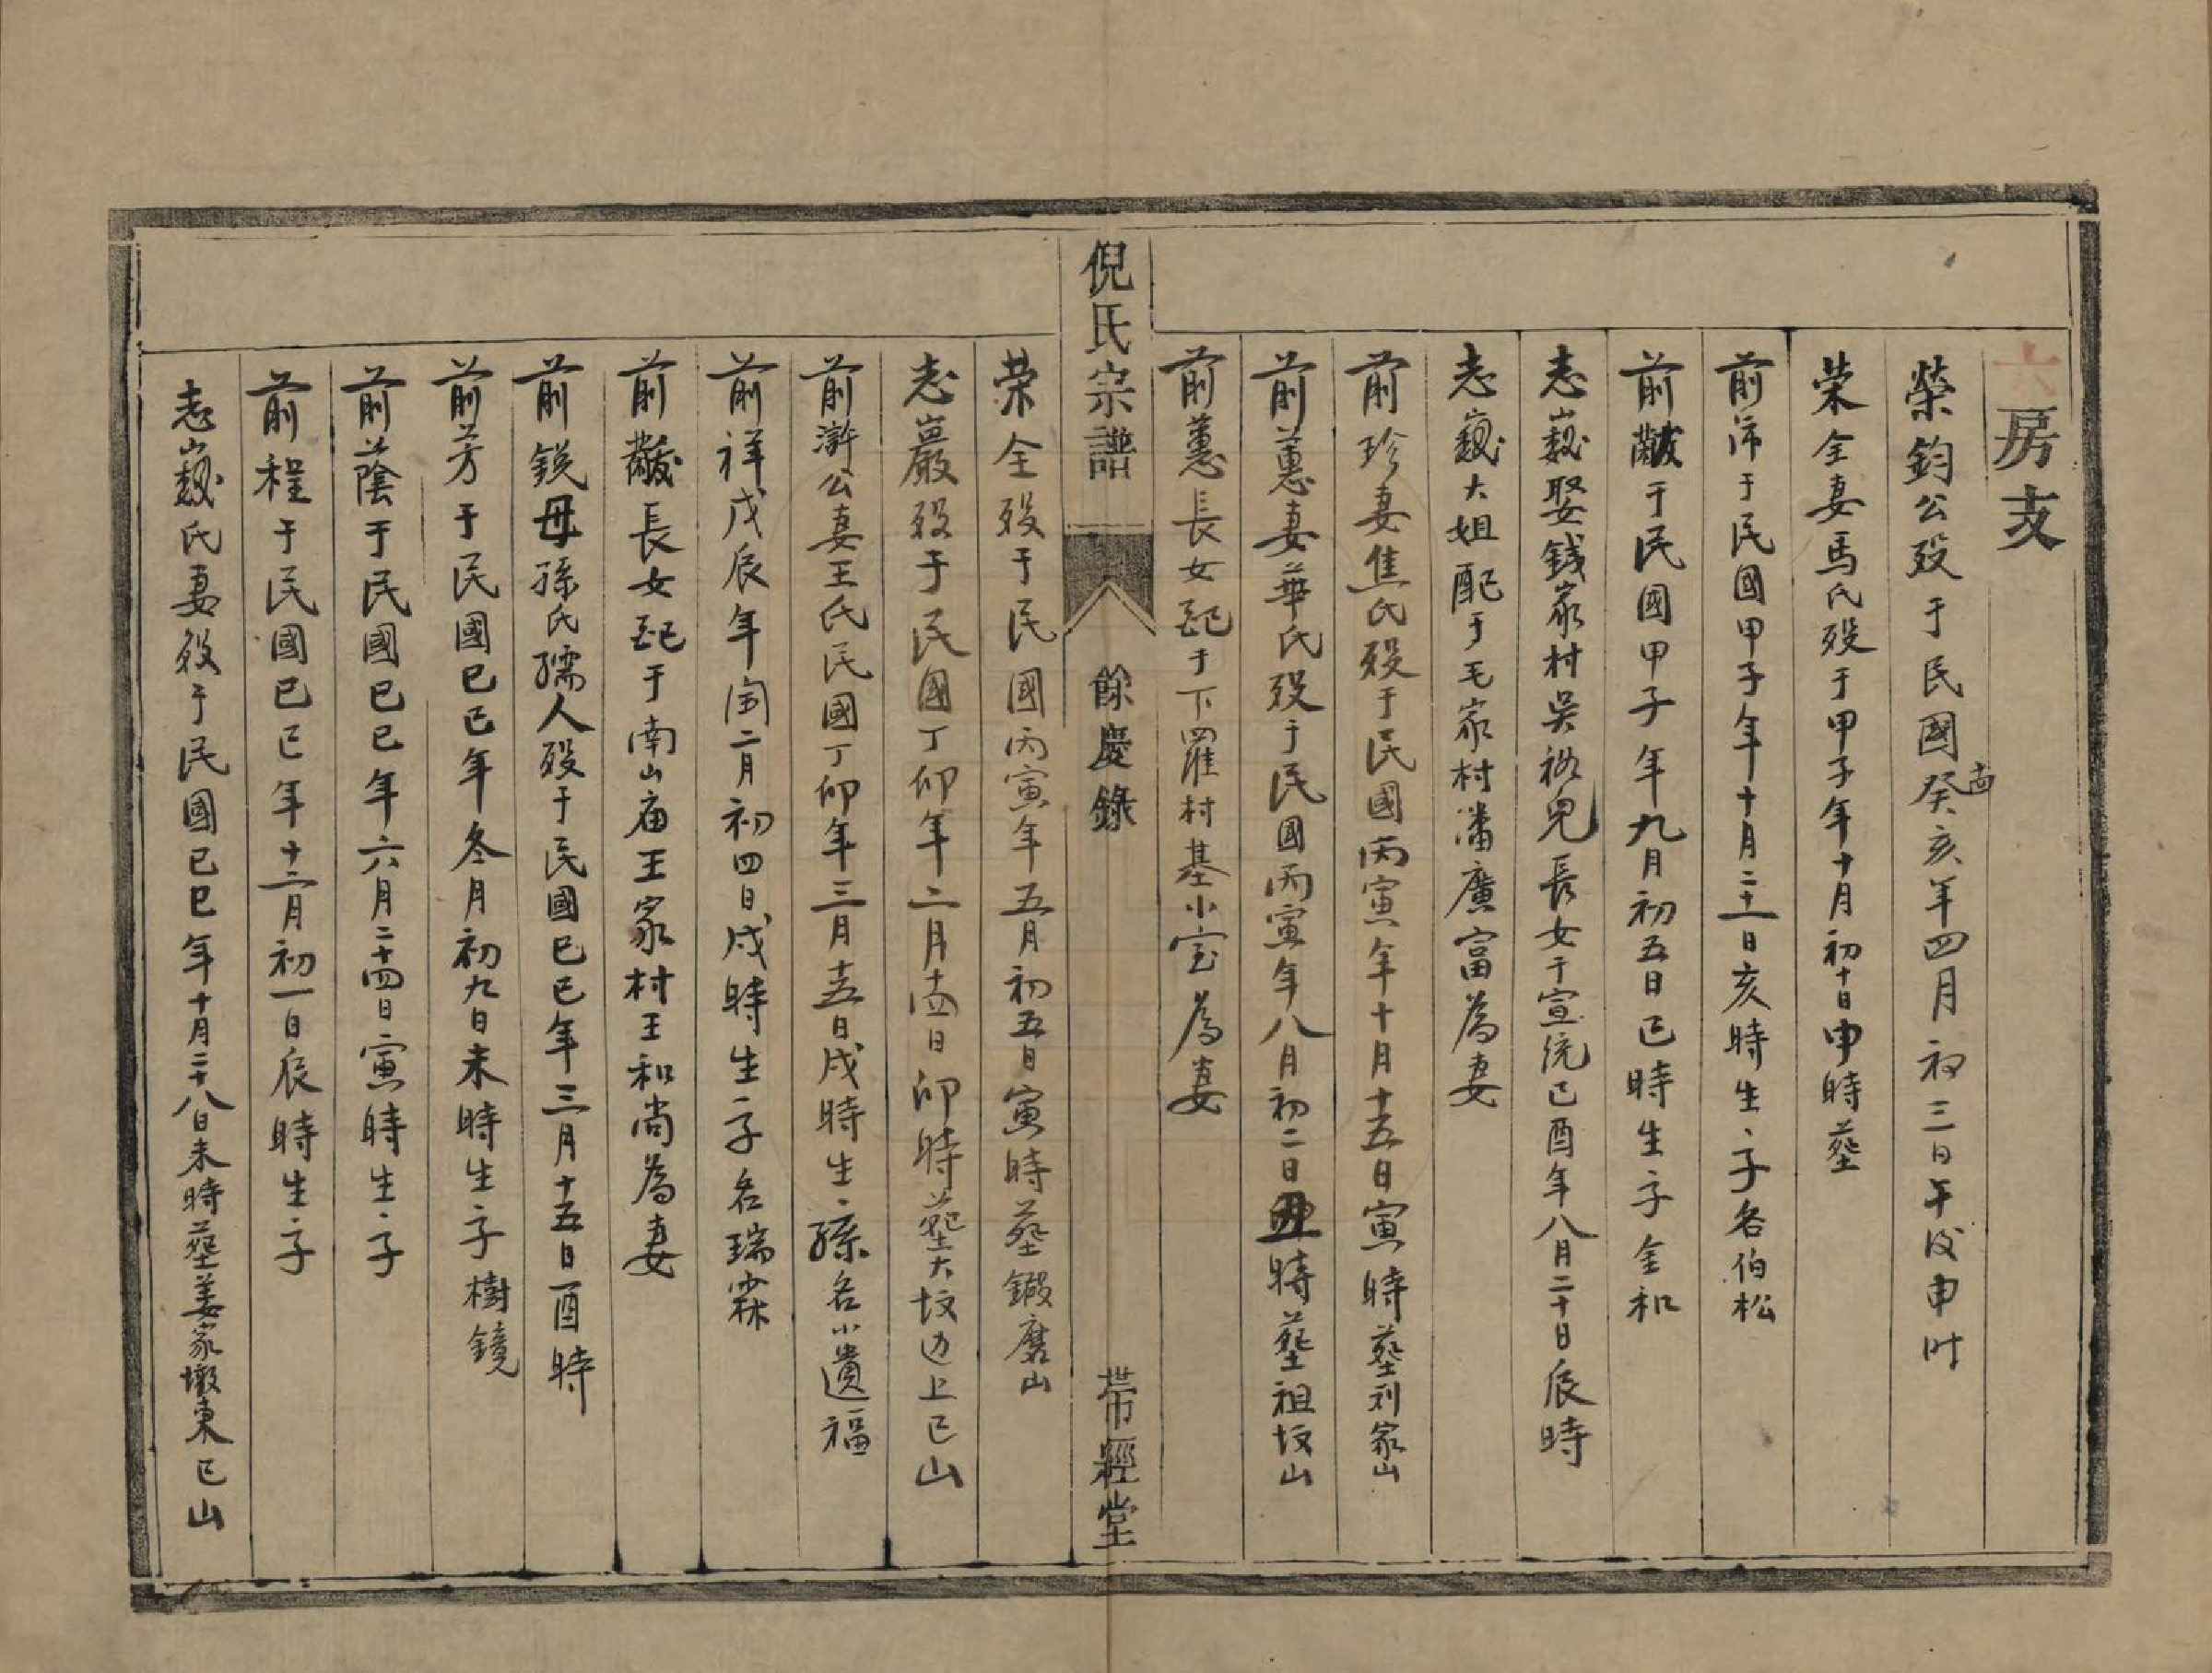 六房支
榮鈞公殁于民國癸亥年四月初三日午後申时
荣全妻馬氏殁于甲子年十月初十日申時葬
前沛于民國甲子年十月二十二日亥時生子名伯松
前黻于民國甲子年九月初五日巳時生子金和
志巍娶錢家村吳裕兒長女于宣统己酉年八月二十日辰時
志巍大姐配于毛家村潘廣富為妻
前珍妻焦氏殁于民國丙寅年十月十五日寅時葬利家山
前蕙妻華氏殁于民國丙寅年八月初二日丑時葬祖坟山
前蕙長女配于下羅村基小宝為妻
倪氏宗譜 餘慶錄 帶經堂
荣全殁于民國丙寅年五月初五日寅時葬鍛磨山
志巖殁于民國丁卯年二月十四日卯時葬大坟边上己山
前澣公妻王氏民國丁卯年三月十五日戌時生孫名小遺福
前祥戊辰年闰二月初四日戌時生子名瑞霖
前黻長女配于南山庙王家村王和尚為妻
前鋭母孫氏孺人殁于民國己巳年三月十五日酉時
前芳于民國己巳年冬月初九日未時生子樹鏡
前蔭于民國己巳年六月二十四日寅時生子
前程于民國己巳年十二月初一日辰時生子
志巍氏妻殁于民國己巳年十月二十八日未時葬姜家墩東己山